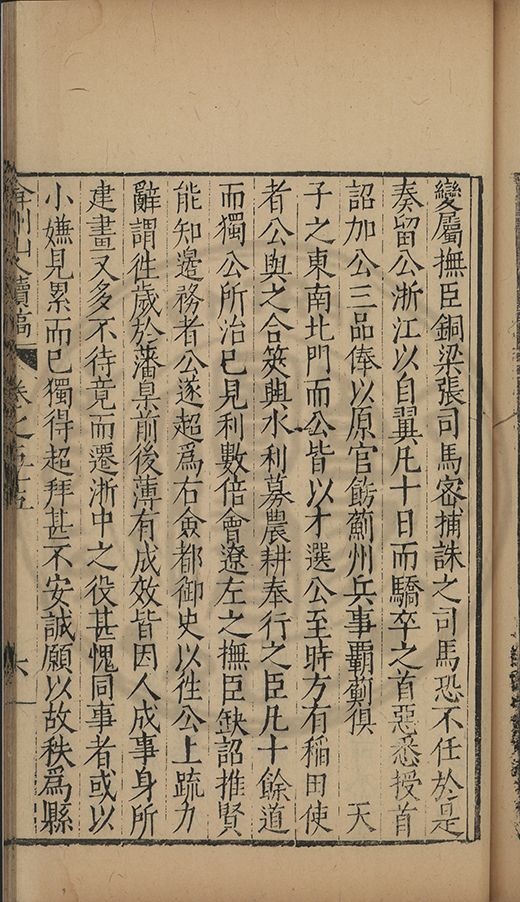 變屬撫臣銅梁張司馬密捕誅之司馬恐不任於是
奏留公浙江以自翼凡十日而驕卒之首惡悉授首
詔加公三品俸以原官飭薊州兵事霸薊俱　　天
子之東南北門而公皆以才選公至時方有稻田使
者公與之合筴興水利募農耕奉行之臣凡十餘道
而獨公所治已見利數倍會遼左之撫臣缺詔推賢
能知邊務者公遂超爲右僉都御史以徃公上䟽力
辭謂徃歲於藩臬前後薄有成效皆因人成事身所
建畫又多不待竟而遷浙中之役甚愧同事者或以
小嫌見累而已獨得超拜甚不安誠願以故秩爲縣
弇州山人續稿 卷之 六